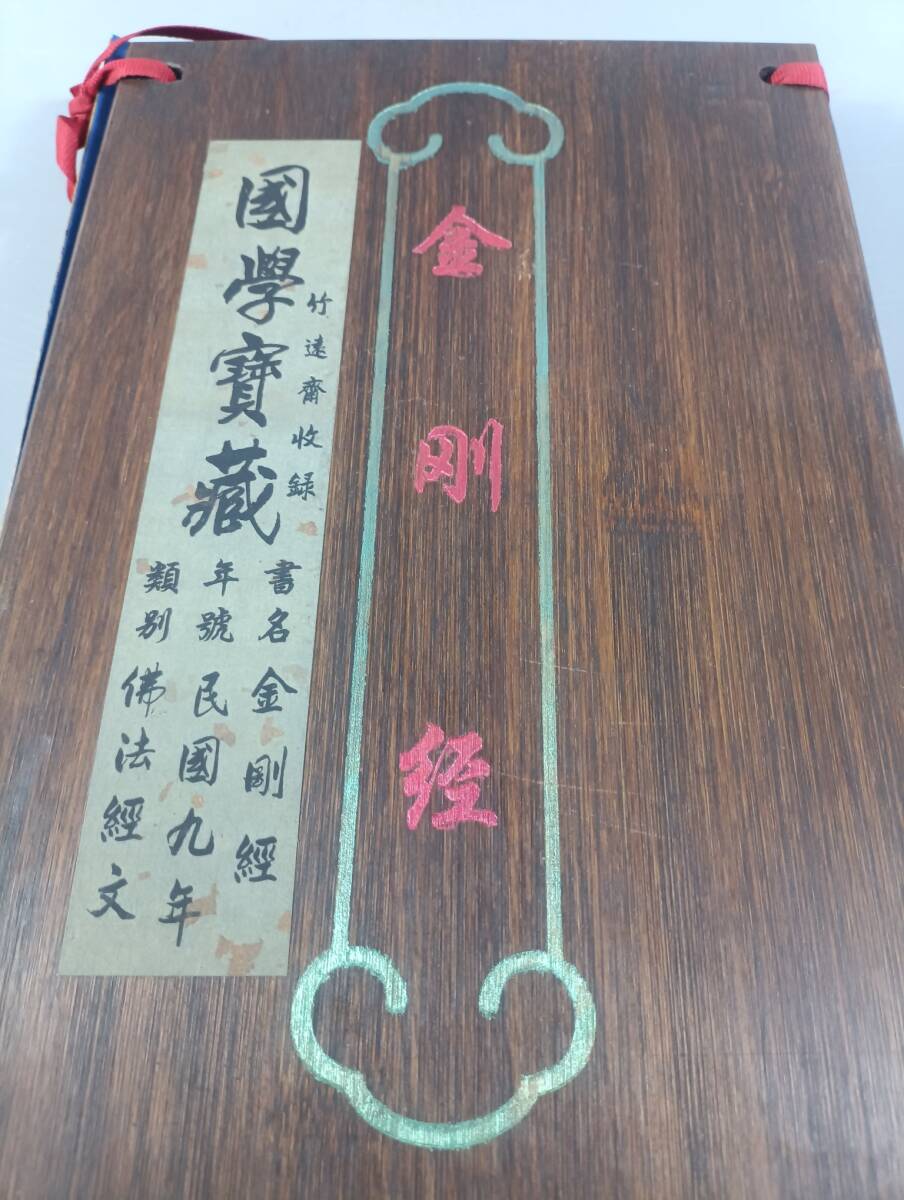 金刚经
國學寶藏
竹遠齋收録
書名金剛經
年號民國九年
類别佛法經文